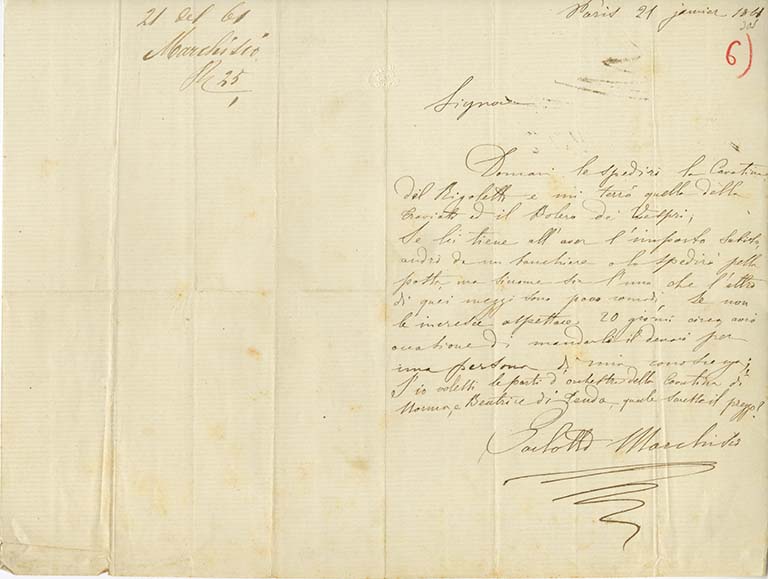 21 del 61
Marchisio
R 25
Paris 21 janvier 1861
6)
Signore
Domani le spedirò la Cavatina
del Rigoletto e mi terrò quella della
Traviata ed il Bolero dei Vespri;
Se lei tiene all'aver l'importo subito,
andrò da un banchiere o lo spedirò pella
posta, ma siccome sia l'uno che l'altro
di quei mezzi sono poco comodi, se non
le incresce aspettare 20 giorni circa avrò
occasione di mandarle il denaro per
una persona di mia conoscenza;
S'io volessi le parti d'orchestra della Cavatina di
Norma, e Beatrice di Tenda, quale sarebbe il prezzo?
Carlotta Marchisio